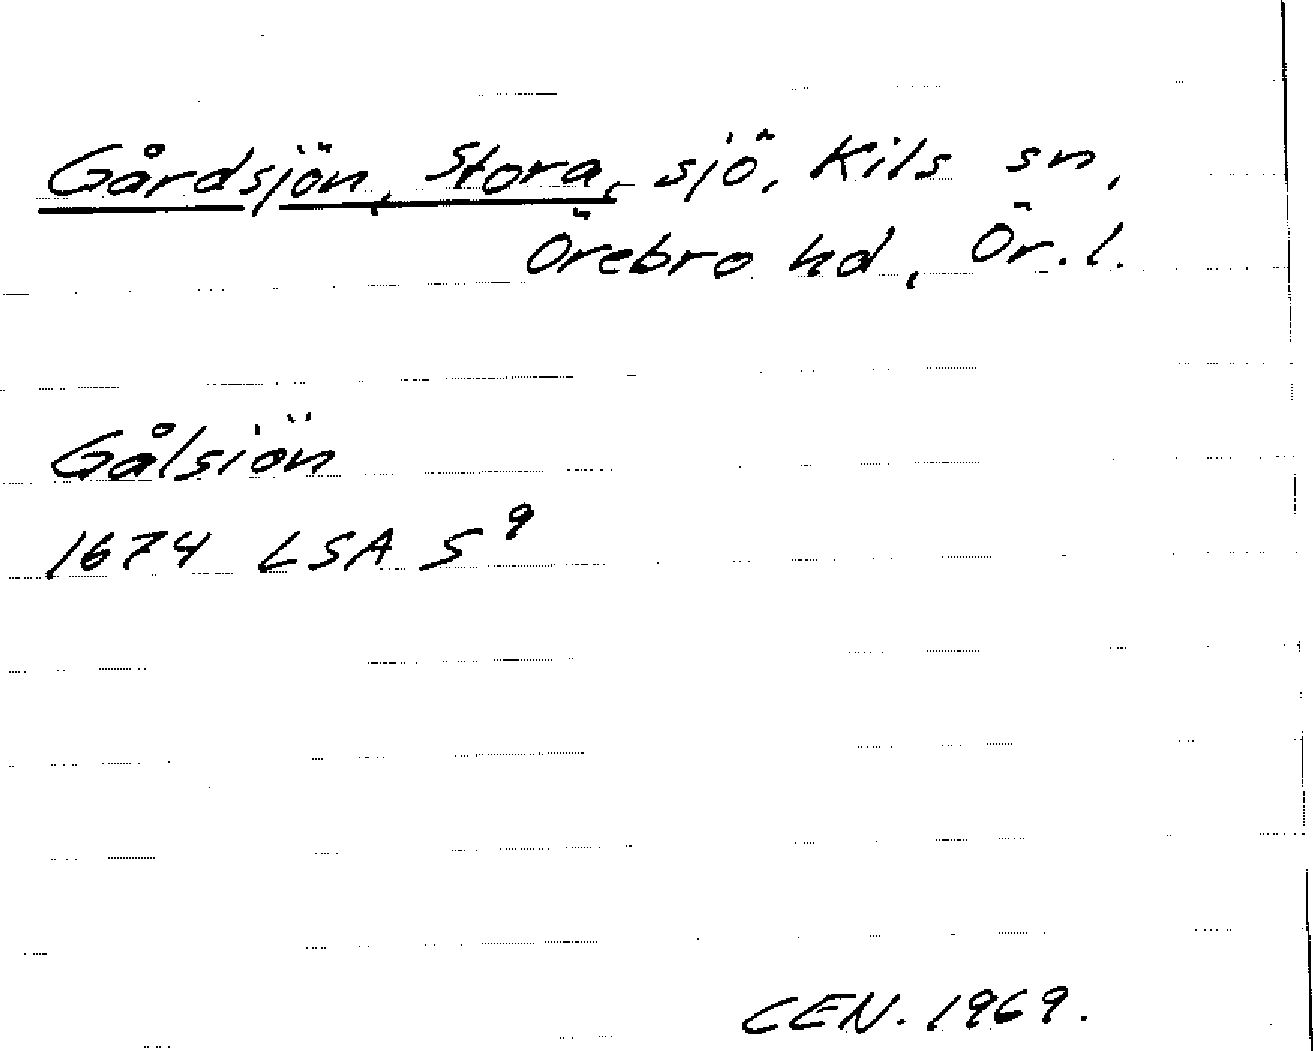 Gårdsjön, Stora, sjö, Kils sn,
Örebro hd, Ör. l.
Gålsiön
1674 LSA S⁹
CEN. 1969.